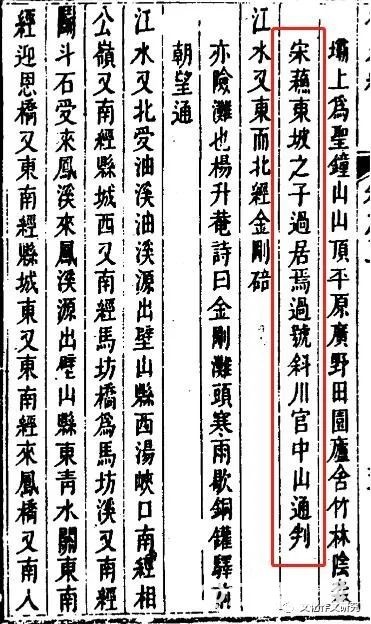 壩上爲聖鐘山山頂平原廣野田園廬舍竹林陰
宋蘓東坡之子過居焉過號斜川官中山通判
江水又東而北經金剛碚
亦險灘也楊升菴詩曰金剛灘頭寒雨歇銅鑵驛前
朝望通
江水又北受油溪油溪源出壁山縣西湯峽口南經相
公嶺又南經縣城西又南經馬坊橋爲馬坊溪又南經
關斗石受來鳳溪來鳳溪源出壁山縣東青水關東南
經迎思橋又東南經縣城東又東南經來鳳橋又南入